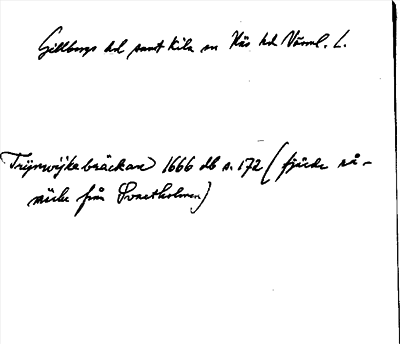 Gillbergs hd samt Kila sn Näs hd Värml. L.
Trijnwijkebräckan 1666 db s. 172 (fjärde rå-
märke från Svartholmen)